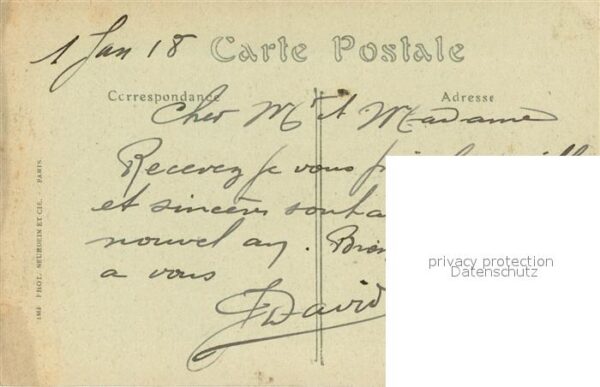 1 Jan 18 Carte Postale
Correspondance Adresse
Cher Mr et Madame
Recevez je vous
et sincères
nouvel an.
a vous
David
IMP. PHOT. NEURDEIN ET CIE. PARIS.
privacy protection
Datenschutz